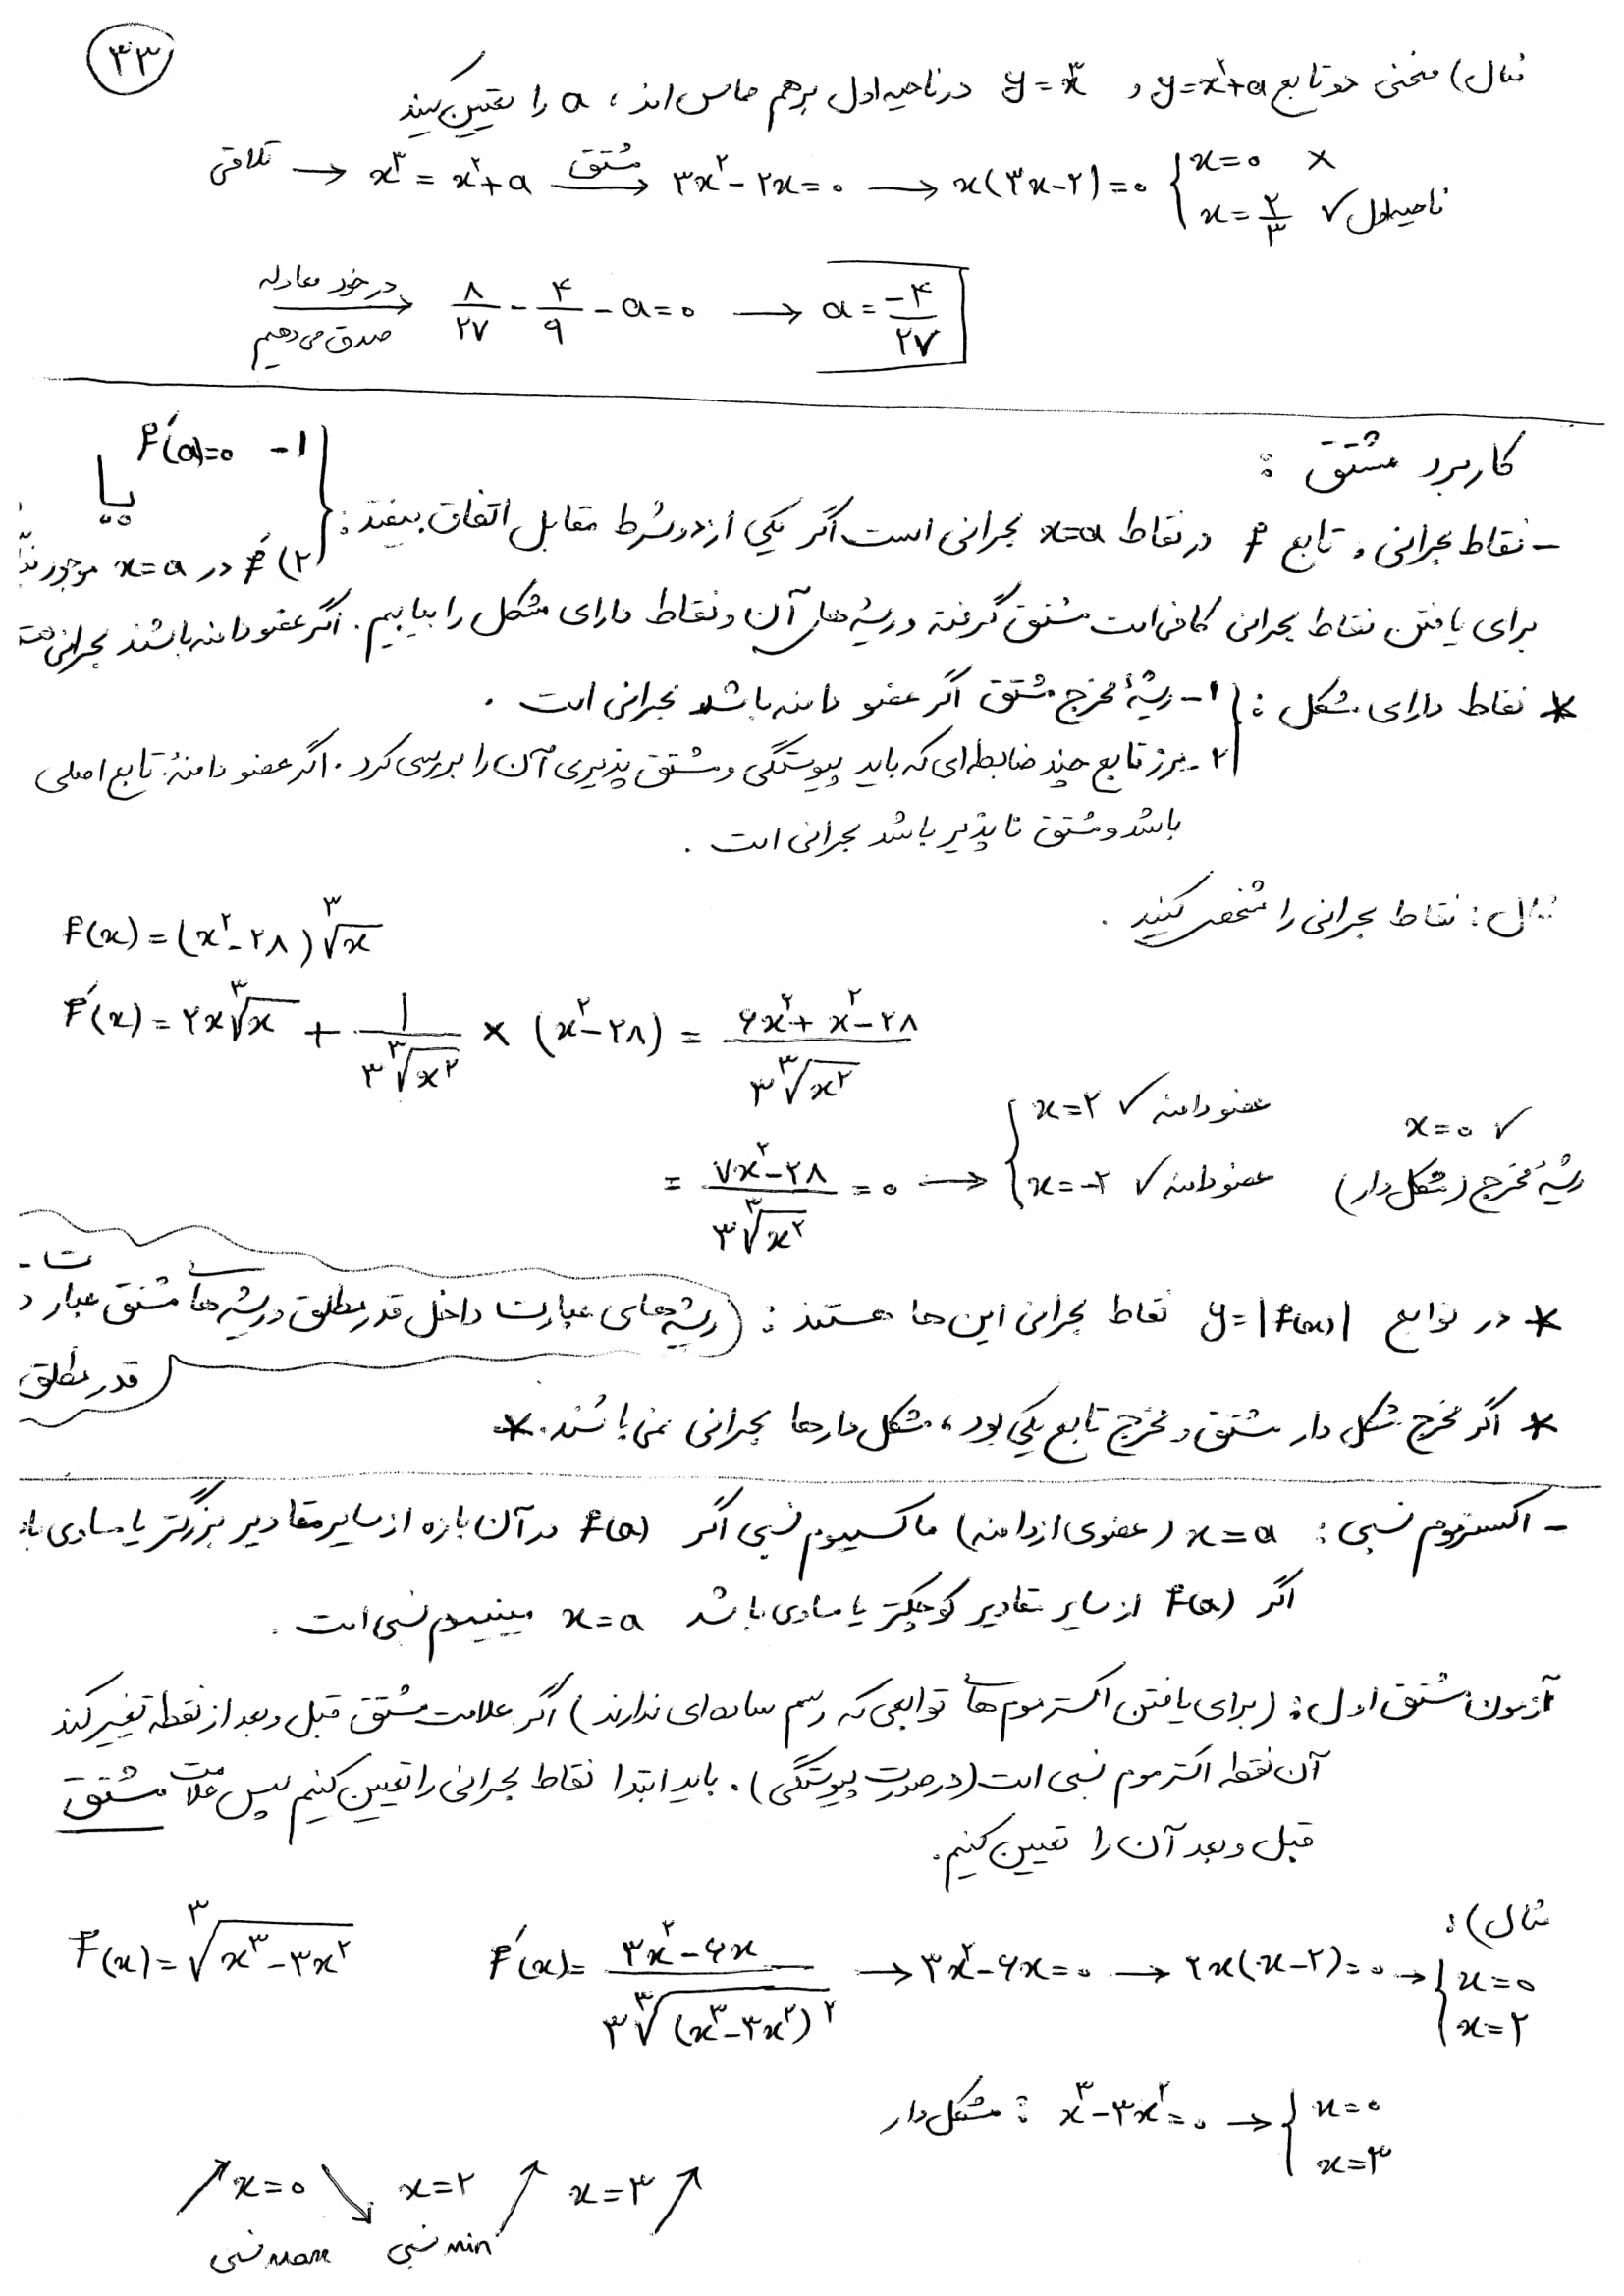 ۳۳
مثال) منحنی دو تابع y=x²+a و y=x³ در ناحیه اول بر هم مماس اند، a را تعیین کنید
تلاقی → x³ = x²+a →مشتق ۳x²-۲x=۰ → x(۳x-۲)=۰ { x=۰ ×
x=۲/۳ ✓ ناحیه اول
در خود معادله صدق می دهیم → ۸/۲۷ - ۴/۹ - a=۰ → a=-۴/۲۷
کاربرد مشتق :
- نقاط بحرانی: تابع f در نقاط x=a بحرانی است اگر یکی از دو شرط مقابل اتفاق بیفتد: { ۱- f′(a)=۰
یا
۲) f′ در x=a موجود
برای یافتن نقاط بحرانی کافی است مشتق گرفته و ریشه های آن و نقاط دارای مشکل را بیابیم. اگر عضو دامنه باشند بحرانی
* نقاط دارای مشکل : { ۱- ریشهٔ مخرج مشتق اگر عضو دامنه باشد بحرانی است .
۲- مرز تابع چند ضابطه ای که باید پیوستگی و مشتق پذیری آن را بررسی کرد . اگر عضو دامنهٔ تابع اصلی
باشد و مشتق ناپذیر باشد بحرانی است .
مثال : نقاط بحرانی را مشخص کنید .
f(x) = (x²-۲۸)∛x
f′(x) = ۲x∛x + ۱/(۳∛x²) × (x²-۲۸) = (۶x²+x²-۲۸)/(۳∛x²)
= (۷x²-۲۸)/(۳∛x²) = ۰ → { x=۲ ✓ عضو دامنه
x=-۲ ✓ عضو دامنه
x=۰ ✓
ریشهٔ مخرج (مشکل دار)
* در توابع y=|f(x)| نقاط بحرانی این ها هستند : (ریشه های عبارت داخل قدر مطلق و ریشه های مشتق عبارت د
قدر مطلق
* اگر مخرج مشکل دار مشتق و مخرج تابع یکی بود، مشکل دارها بحرانی نمی باشند. *
- اکسترموم نسبی : x=a (عضوی از دامنه) ماکسیموم نسبی اگر f(a) در آن بازه از سایر مقادیر بزرگتر یا مساوی با
اگر f(a) از سایر مقادیر کوچکتر یا مساوی باشد x=a مینیموم نسبی است .
آزمون مشتق اول : (برای یافتن اکسترموم های توابعی که رسم ساده ای ندارند) اگر علامت مشتق قبل و بعد از نقطه تغییر کند
آن نقطه اکسترموم نسبی است (در صورت پیوستگی). باید ابتدا نقاط بحرانی را تعیین کنیم سپس علامت مشتق
قبل و بعد آن را تعیین کنیم.
مثال) :
f(x) = ∛(x³-۳x²) f′(x) = (۳x²-۶x)/(۳∛(x³-۳x²)²) → ۳x²-۶x=۰ → ۳x(x-۲)=۰ → { x=۰
x=۲
مشکل دار : x³-۳x²=۰ → { x=۰
x=۳
↗ x=۰ ↘ x=۲ ↗ x=۳ ↗
max نسبی min نسبی